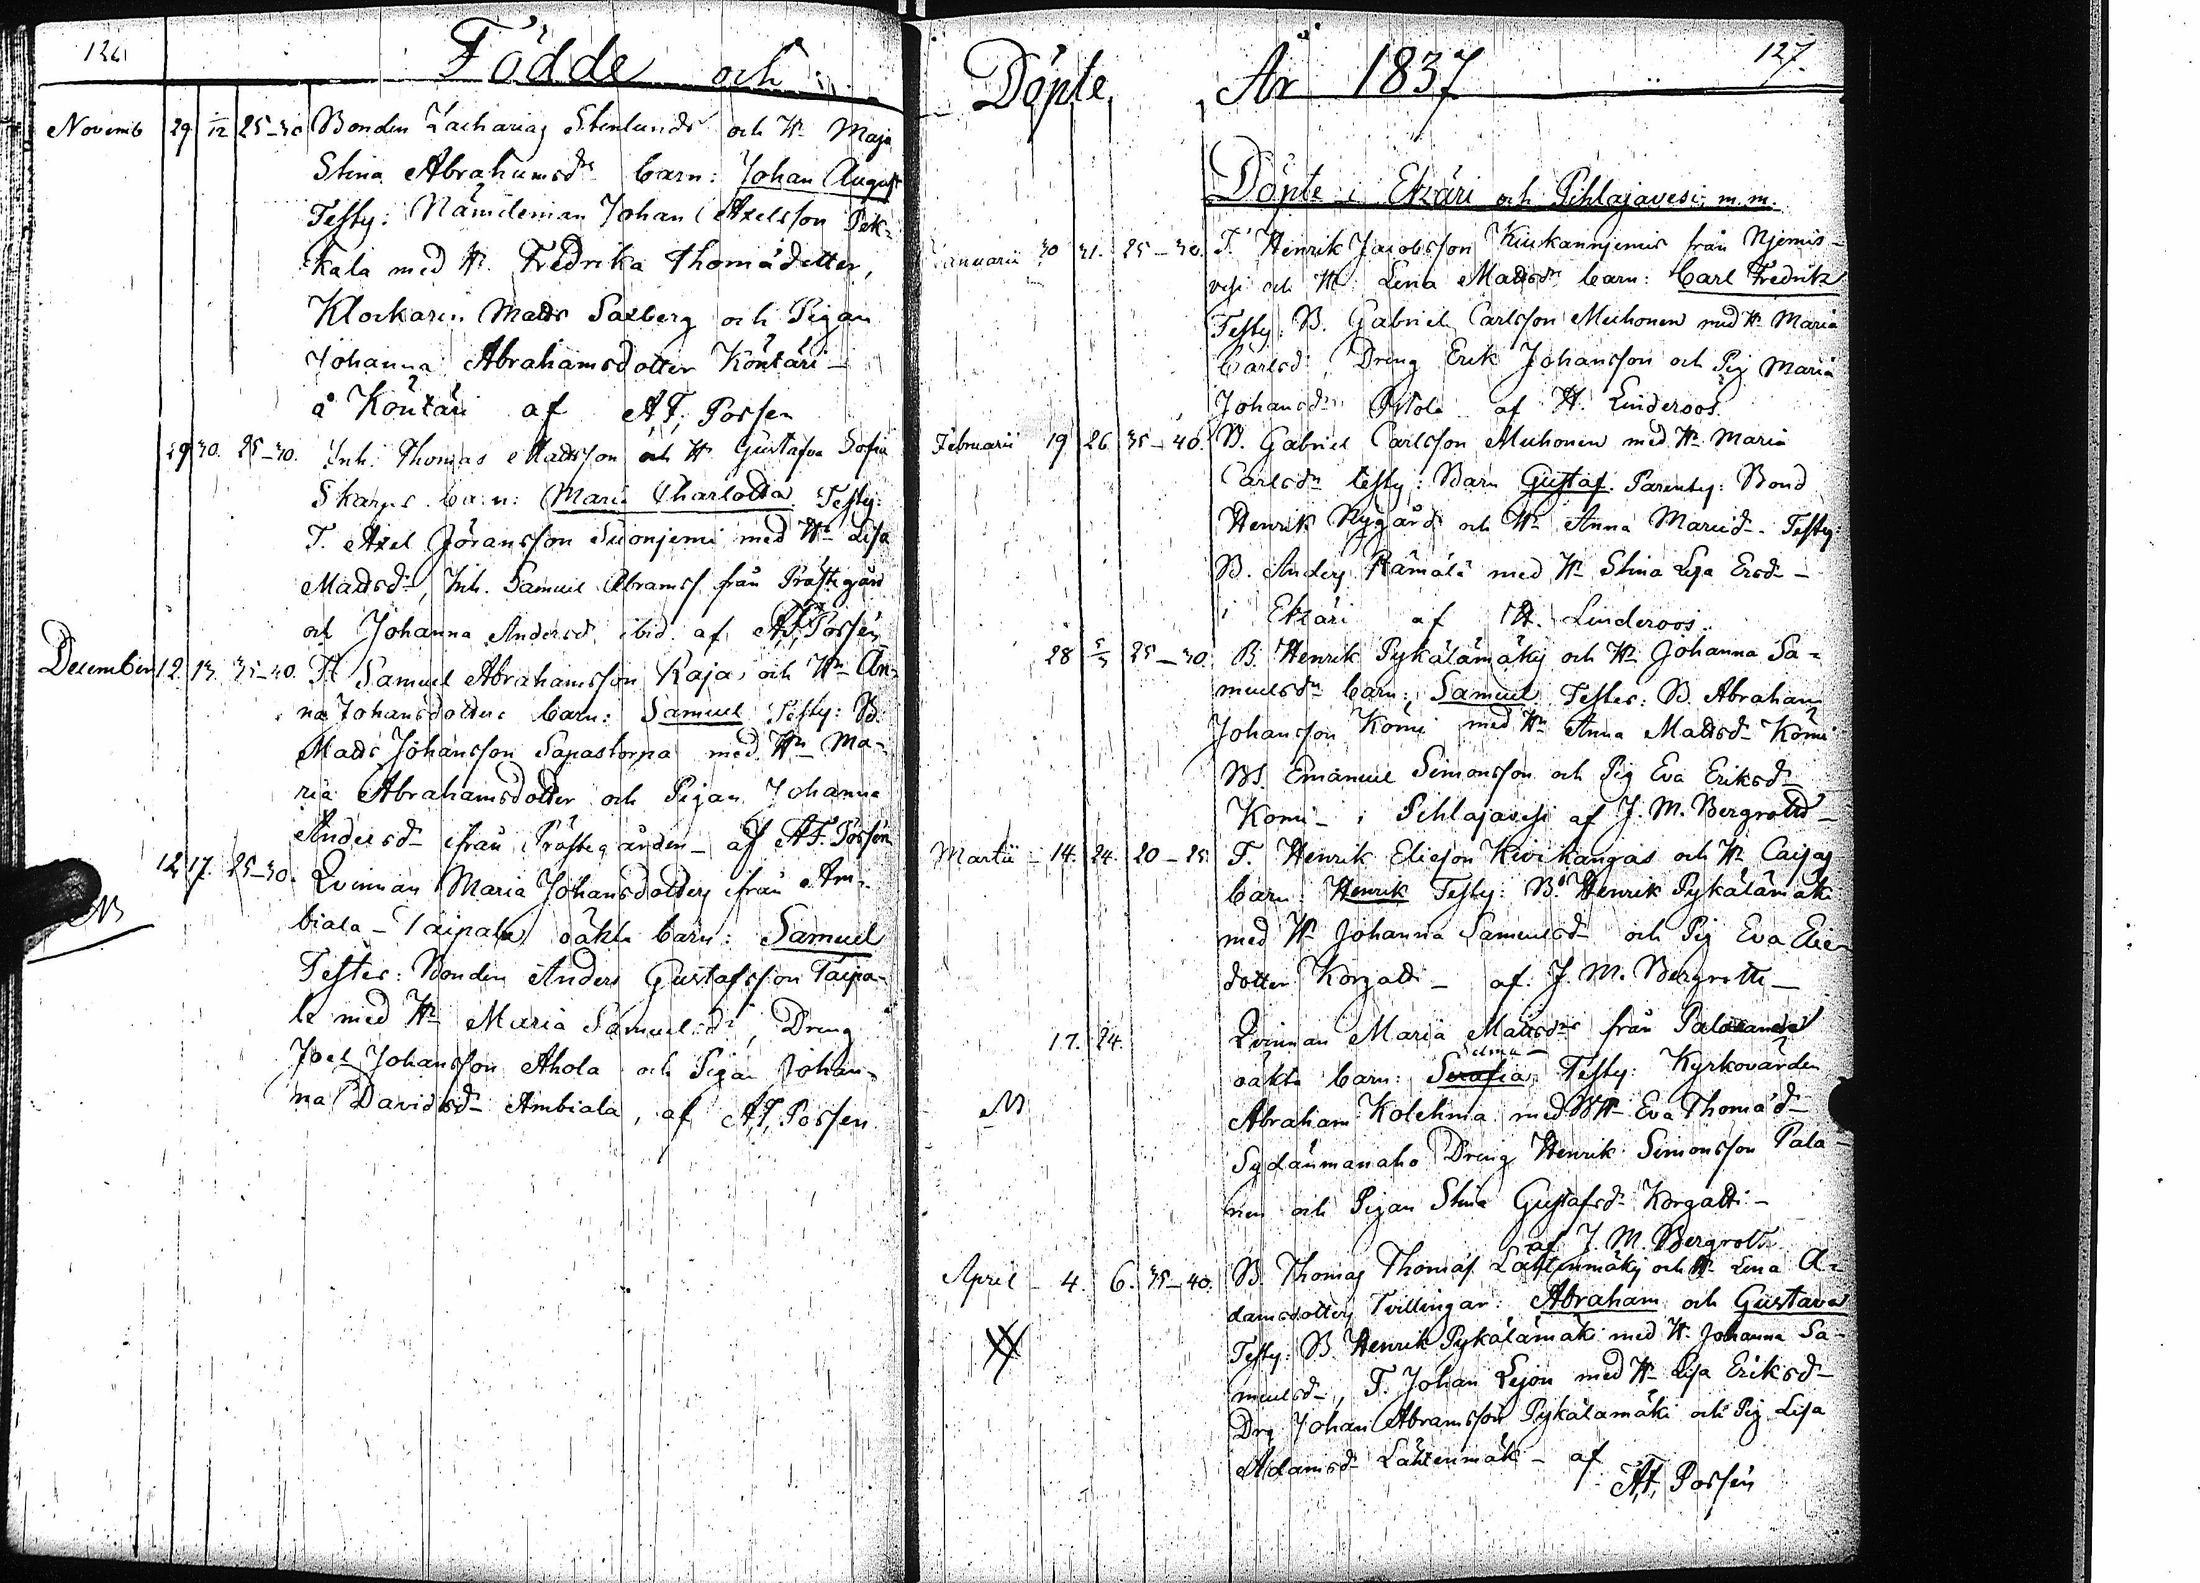 126
Födde och
Novemb 29 1/12 25-30 Bonden Zacharias Stenlunds och H. Maja
Stina Abrahamsdrs barn: Johan August
Testes: Nämdeman Johan Axelsson Pek-
kala med H. Fredrika Thomädotter,
Klockaren Matts Saxberg och Pigan
Johanna Abrahamsdotter Köntäri
å Köntäri af A.F. Possen
29 30. 25-30. Inh. Thomas Mattsson och H. Gustafva Sofia
Skarps barn: Maria Charlotta. Testes:
T. Axel Jöransson Suonjemi med H. Lisa
Mattsdr, Inh. Samuel Abramss. från Prästegård
och Johanna Andersd. ibid. af A.F. Possen
December 12. 13. 35-40. T. Samuel Abrahamsson Kaja och H. An-
na Johansdotters barn: Samuel Testes: B.
Matts Johansson Sapastorpa med H. Ma-
ria Abrahamsdotter och Pigan Johanna
Andersd. ifrån Prästegården - af A.F. Possen
12 17. 25-30. Qvinnan Maria Johansdotters ifrån Am-
biala - Taipale oäkta barn: Samuel
Testes: Bonden Anders Gustafsson Taipa-
le med H. Maria Samuelsdr, Dreng
Joel Johansson Ahola och Pigan Johan-
na Davidsd. Ambiala, af A.F. Possen
Döpte, År 1837
127.
Döpte i Etzäri och Pihlajavesi, m.m.
Januarii 30 31. 25-30. T. Henrik Jacobsson Kiukannjemis från Njemis-
vesi och H. Lena Mattsdrs barn: Carl Fredrik
Testes: B. Gabriel Carlsson Muhonen med H. Maria
Carlsd., Dreng Erik Johansson och Pig Maria
Johansdr af H. Linderoos.
Februarii 19 26. 35-40. B. Gabriel Carlsson Muhonen med H. Maria
Carlsdr testes: Barn Gustaf. Parentes: Bond
Henrik Nygård och H. Anna Marid. Testes:
B. Anders Rämälä med H. Stina Lisa Ersd. -
i Etzäri af H. Linderoos.
28 5/3 25-30. B. Henrik Pykälämäkis och H. Johanna Sa-
muelsdrs barn: Samuel Testes: B. Abraham
Johansson Komi med H. Anna Mattsd. Komi
Emanuel Simonsson och Pig Eva Eriksd.
Komi - i Pihlajavesi af J. M. Bergroth
Martii - 14. 24. 20-25 T. Henrik Eliesson Kivikangas och H. Caisas
barn: Henrik Testes: B. Henrik Pykälämäki
med H. Johanna Samuelsd. och Pig Eva Elie-
dotter Korgatti - af J. M. Bergroth -
17. 24. Qvinnan Maria Mattsdrs från
Selma
oäkta barn: Serafia, Testes: Kyrkovärden
Abraham Kolehma med H. Eva Thomäd.
Sydänmanaho Dreng Henrik Simonsson Pala-
nen och Pigan Stina Gustafsd. Korgatti -
af J. M. Bergroth
April - 4. 6. 35-40. B. Thomas Thomäs. Lähtenmäkis och H. Lena A-
damsdotters Tvillingar: Abraham och Gustava
Testes: B. Henrik Pykälämäki med H. Johanna Sa-
muelsd., T. Johan Lejon med H. Lisa Eriksd.
Drg Johan Abramsson Pykälämäki och Pig Lisa
Adamsd. Lähtenmäki - af
A.F. Possen